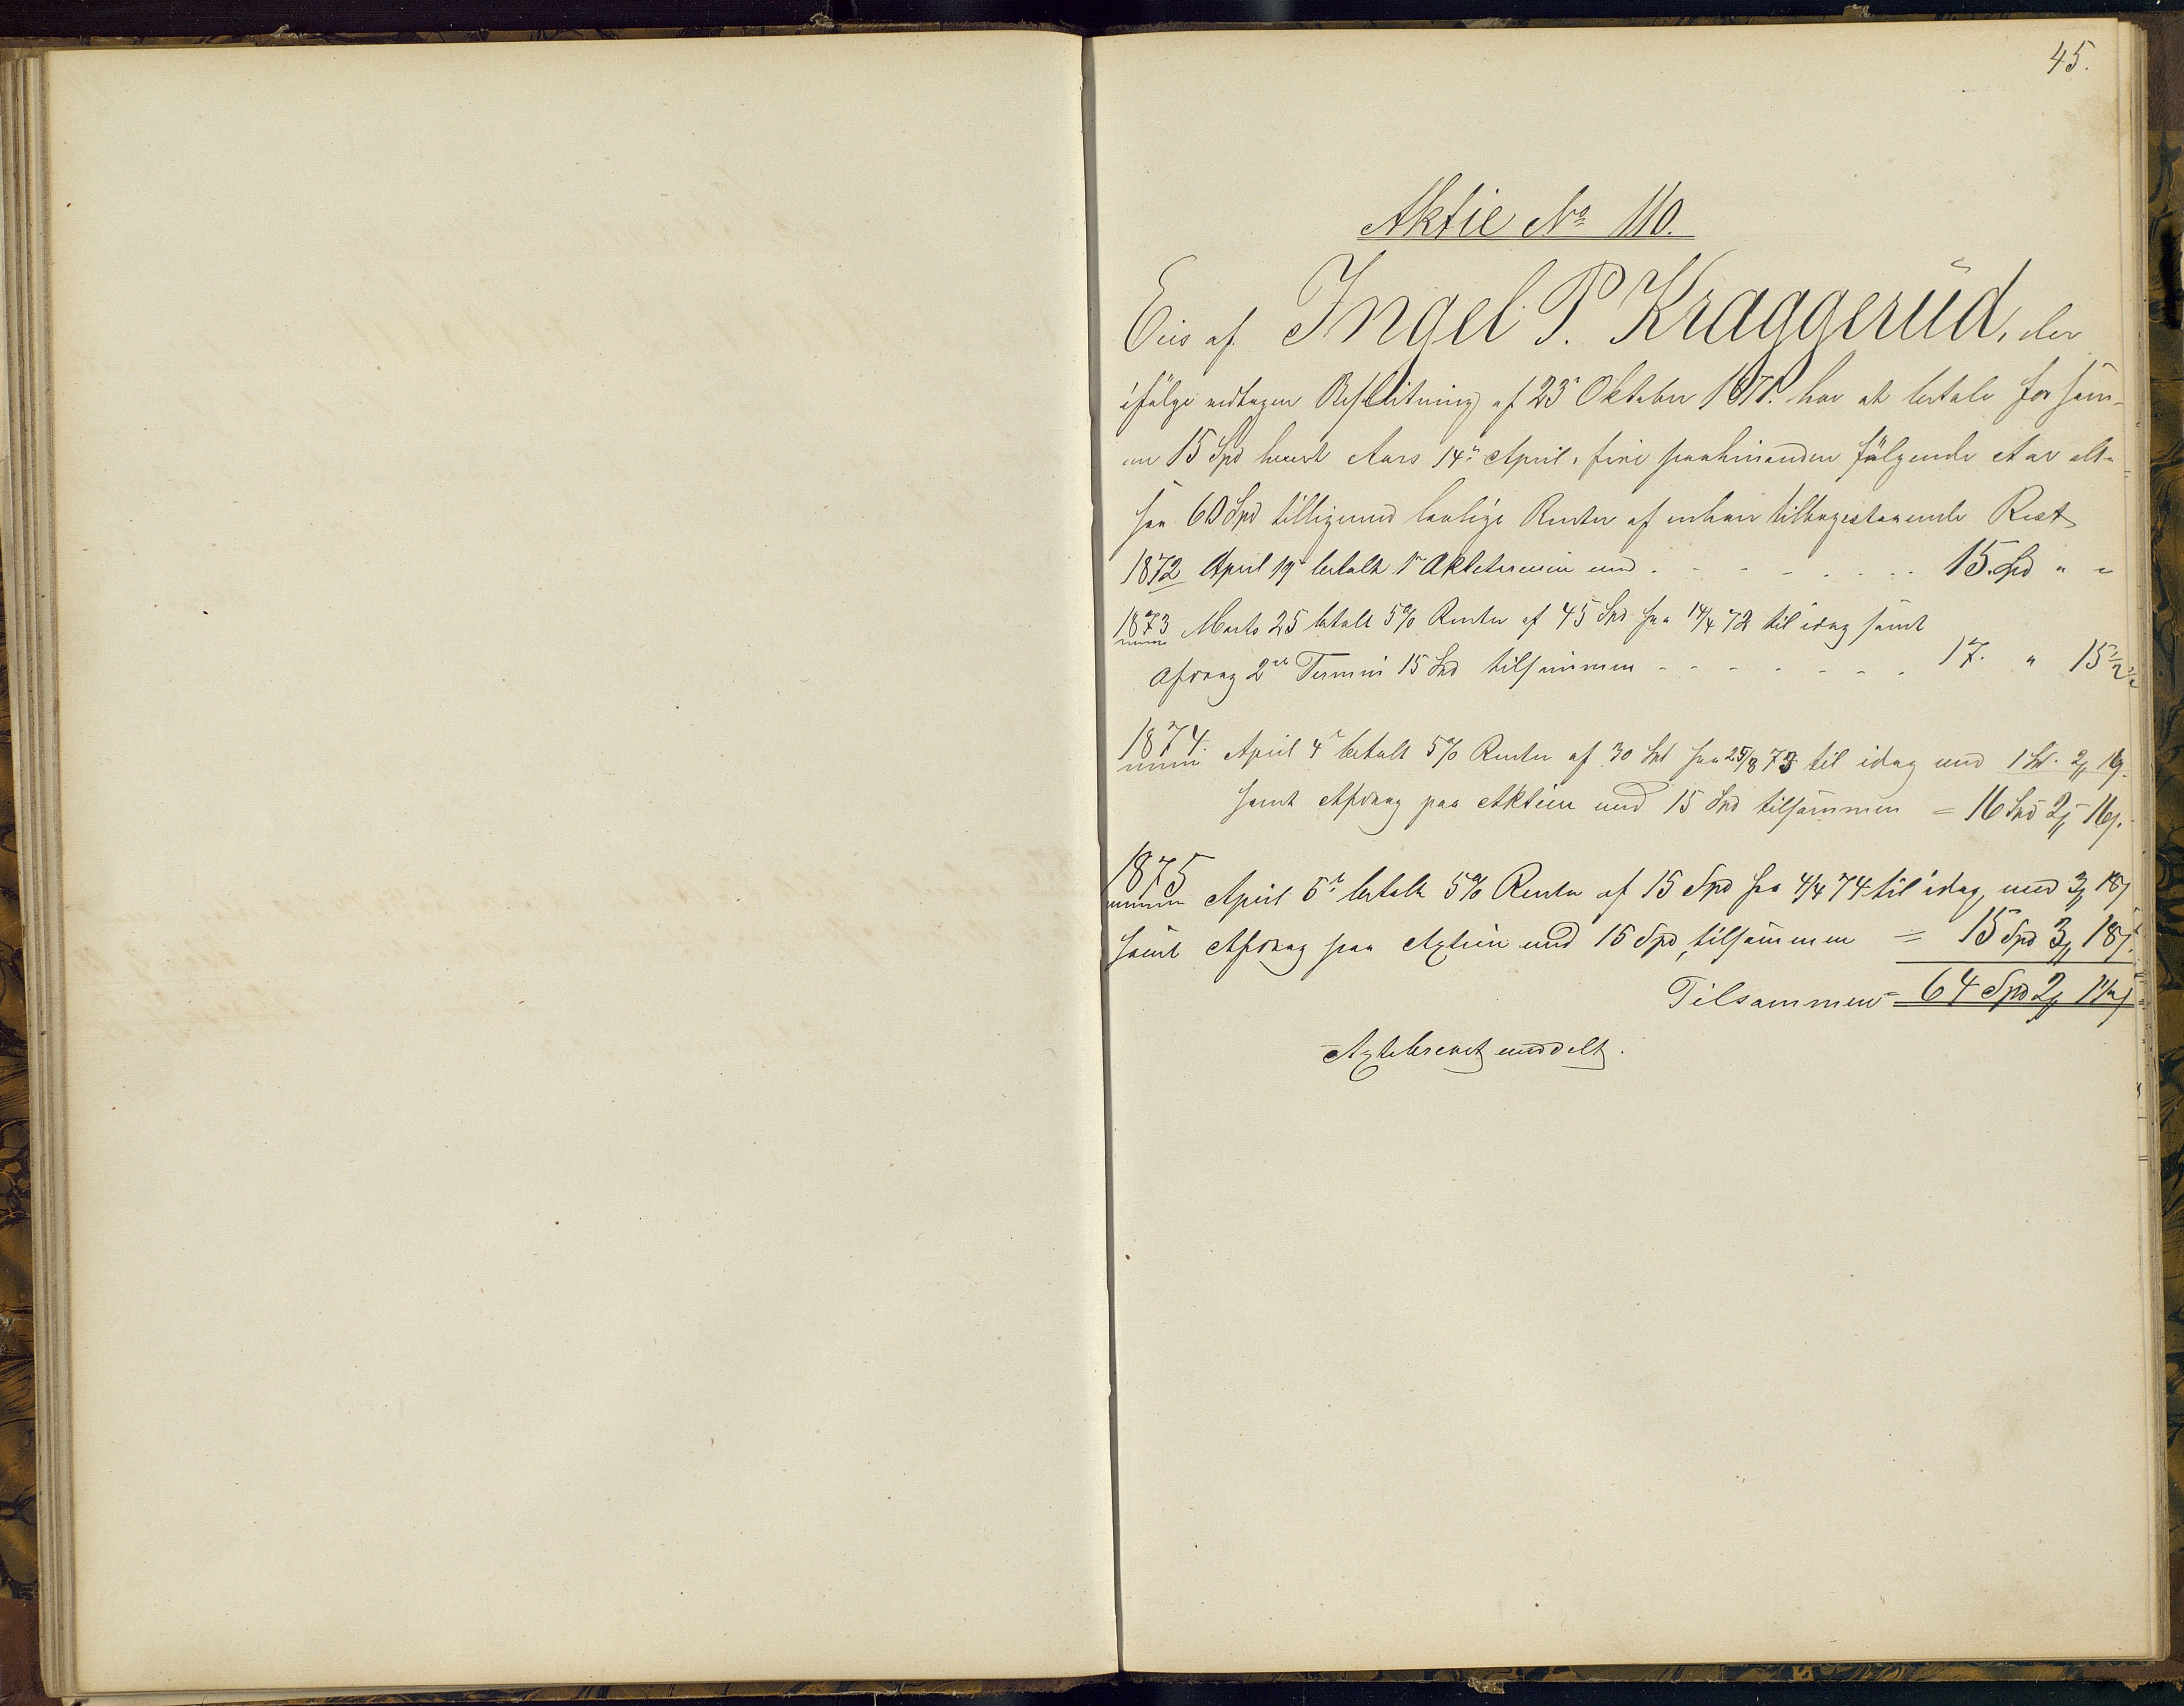 45.
Aktie No 110.
Eies af Ingel P. Kraggerud, der
ifølge vedtagen Beslutning af 23de Oktober 1871 har at betale for samme
15 Spd hvert Aars 14de April, fire paahinanden følgende Aar alt-
saa 60 Spd tilligemed lovlige Renter af enhver tilbagestaaende Rest
1872 April 19 betalt 1ste Aktietermin med . . . . . . . 15. Spd " "
1873 Marts 25 betalt 5% Renter af 45 Spd fra 14/4 72 til idag samt
Afdrag 2den Termin 15 Spd tilsammen - - - - - - - 17. " 15 1/2
1874. April 4de betalt 5% Renter af 30 Spd fra 25/3 73 til idag med 1 Spd. 2 16
samt Afdrag paa Aktien med 15 Spd tilsammen = 16 Spd 2 16.
1875 April 5te betalt 5% Renter af 15 Spd fra 4/4 74 til idag med 3 18
samt Afdrag paa Axtien med 15 Spd, tilsammen = 15 Spd 3 18.
Tilsammen = 64 Spd 2 1 1/2
Axtebrevet meddelt.